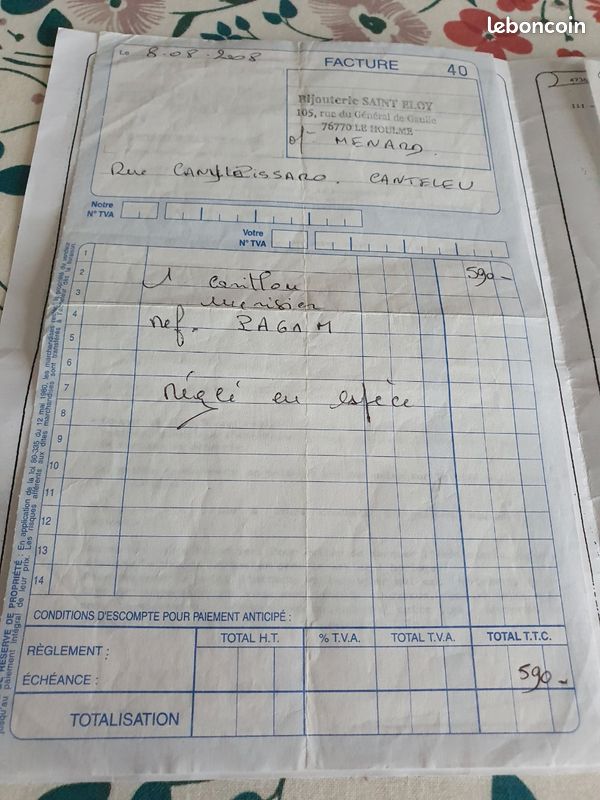 leboncoin
Le 8-08-2008
FACTURE 40
4736
Bijouterie SAINT ELOY
105, rue du Général de Gaulle
76770 LE HOULME
MENARD.
Rue CAMILLE PISSARO. CANTELEU
Notre
N° TVA
Votre
N° TVA
1
2 590-
3 1 carillon
merisier
4 Ref.
5
6
7 Réglé en espèce
8
9
10
11
12
13
14
CONDITIONS D'ESCOMPTE POUR PAIEMENT ANTICIPÉ :
TOTAL H.T. % T.V.A. TOTAL T.V.A. TOTAL T.T.C.
RÈGLEMENT :
ÉCHÉANCE : 590-
TOTALISATION
RÉSERVE DE PROPRIÉTÉ : En application de la loi 80-335 du 12 mai 1980, les marchandises reste la propriété du vendeur
jusqu'au paiement intégral de leur prix. Les risques afférents aux dites marchandises sont transférés à l'acheteur dès la livraison